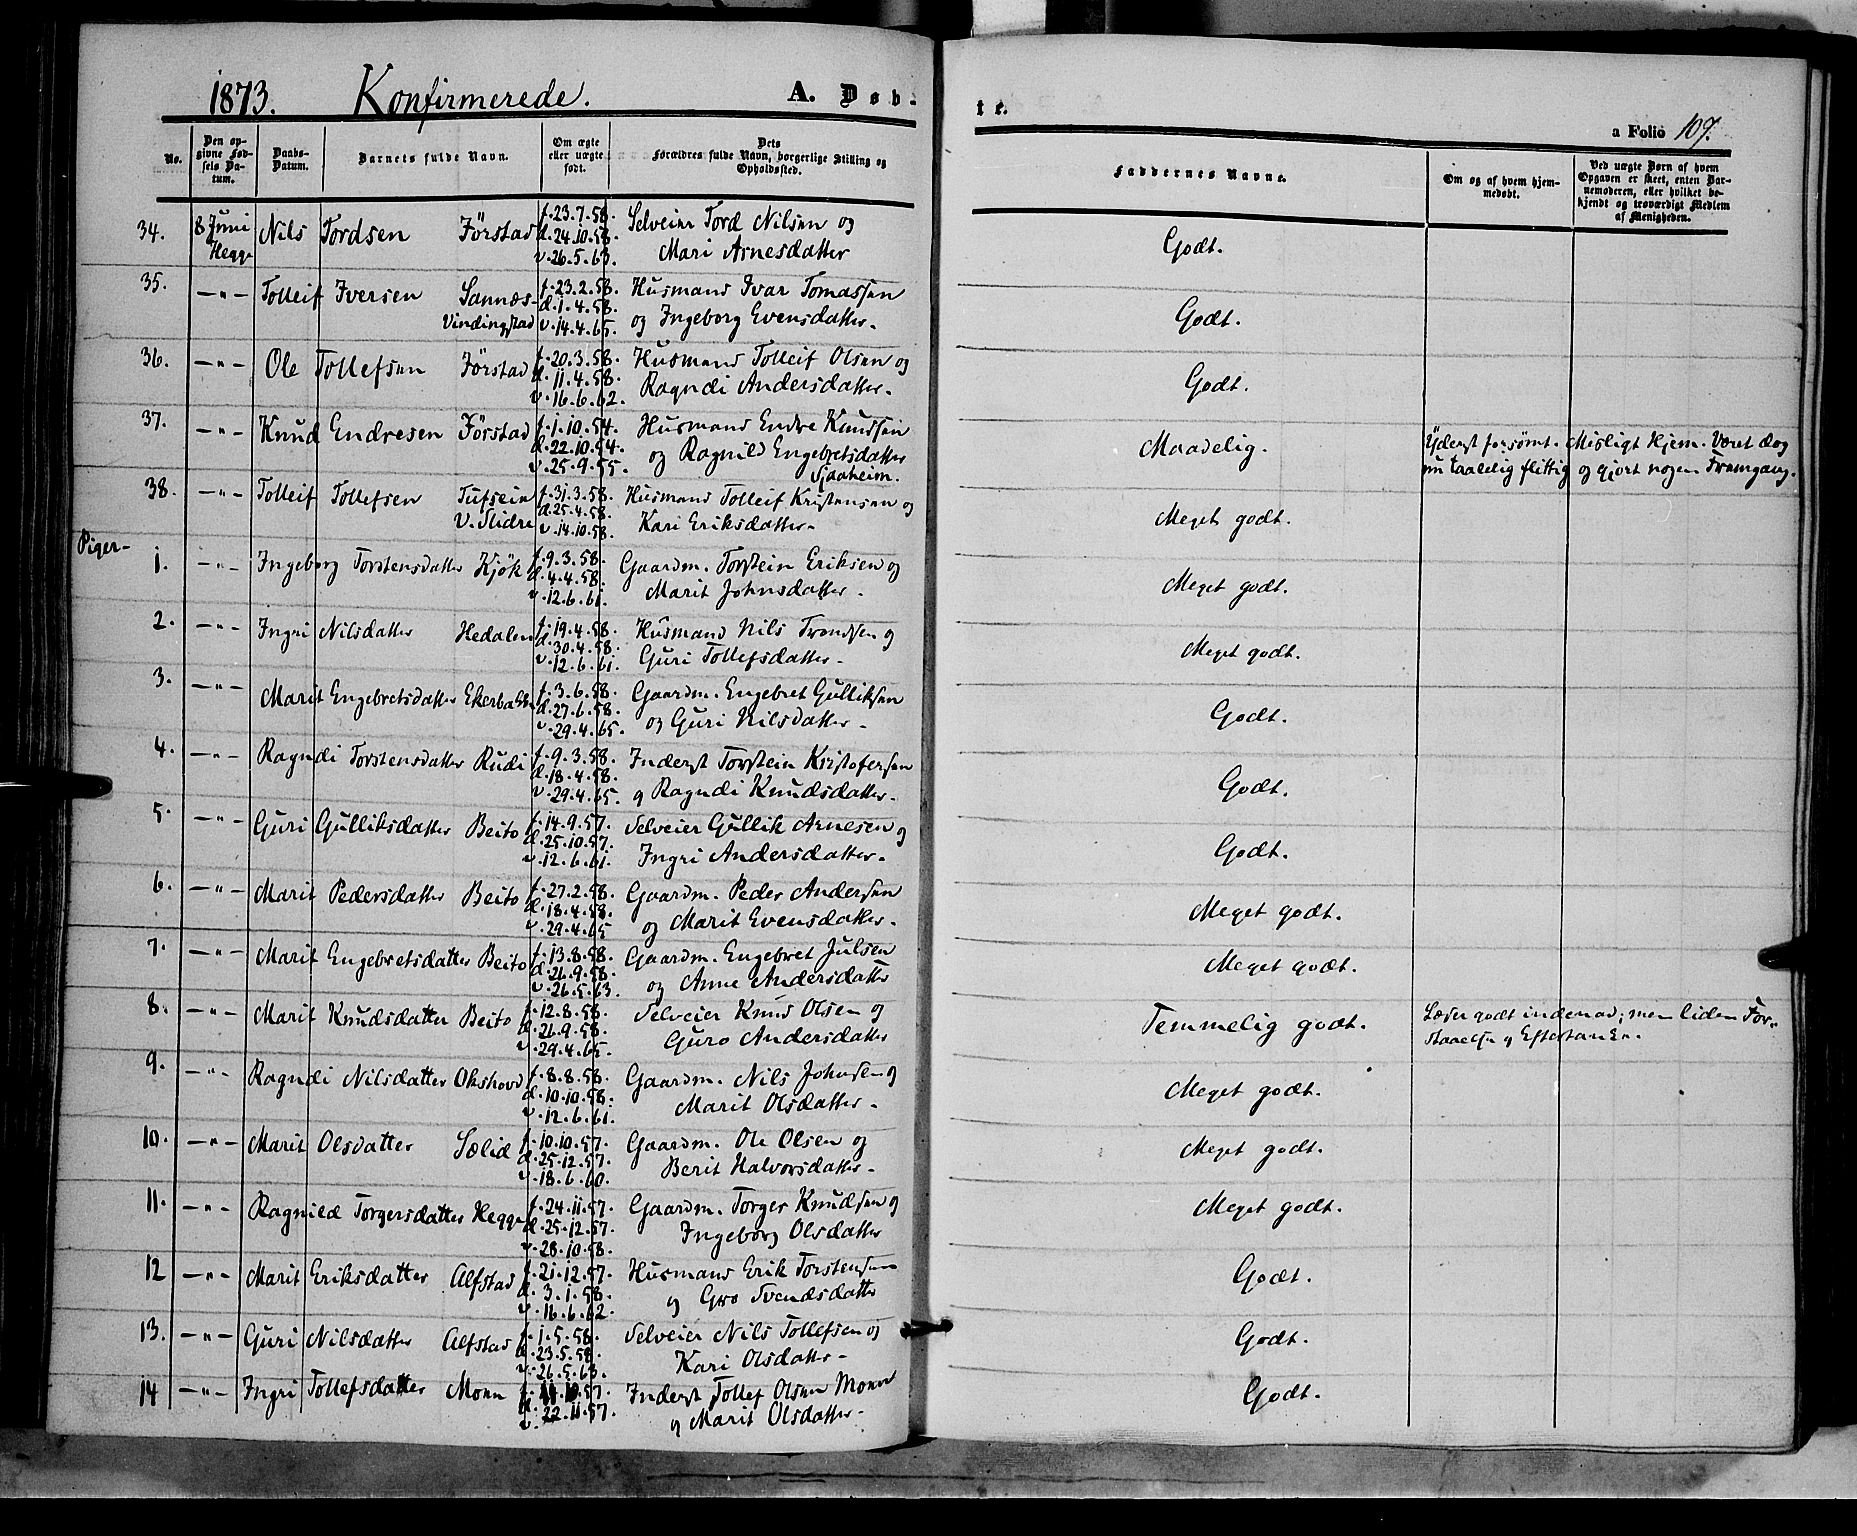 1873. Konfirmerede. A. Døb-
te.
a Folio 109.
No.
Den op-
givne Fød-
sels Da-
tum.
Daabs-
Datum.
Barnets fulde Navn.
Om ægte
eller uægte
født.
Dets
Forældres fulde Navn, borgerlige Stilling og
Opholdssted.
Faddernes Navne.
Om og af hvem hjem-
medøbt.
Ved uægte Børn af hvem
Opgaven er skeet, enten Bar-
nemoderen, eller hvilket be-
kjendt og troværdigt Medlem
af Menigheden.
34. 8 Juni Hegge Nils Tordsen Förstad f. 23.7.58. d. 24.10.58. v. 26.5.63. Selveier Tord Nilsen og
Mari Arnesdatter Godt.
35. —"— Tolleif Iversen Sannæs-
Vindingstad f. 23.2.58. d. 1.4.58. v. 14.4.65. Husmand Ivar Tomassen
og Ingeborg Evensdatter. Godt.
36. —"— Ole Tollefsen Förstad f. 20.3.58. d. 11.4.58. v. 16.6.62. Husmand Tolleif Olsen og
Ragndi Andersdatter. Godt.
37. —"— Knud Endresen Förstad f. 1.10.54. d. 22.10.54. v. 25.9.55. Husmand Endre Knudsen
og Ragnild Engebretsdatter
Sjaaheim. Maadelig. Yderst forsömt. Misligt Hjem. Været dog
nu taalelig flittig og gjort nogen Framgang.
38. —"— Tolleif Tollefsen Tufsein
V. Slidre f. 31.3.58. d. 25.4.58. v. 14.10.58. Husmand Tolleif Kristensen og
Kari Eriksdatter. Meget godt.
Piger-
1. —"— Ingeborg Torstensdatter Kjök f. 9.3.58. d. 4.4.58. v. 12.6.61. Gaardm. Torstein Eriksen og
Marit Johnsdatter. Meget godt.
2. —"— Ingri Nilsdatter Hedalen f. 19.4.58. d. 30.4.58. v. 12.6.61. Husmand Nils Trondsen og
Guri Tollefsdatter. Meget godt.
3. —"— Marit Engebretsdatter Ekerbakke f. 3.6.58. d. 27.6.58. v. 29.4.65. Gaardm. Engebret Gulliksen
og Guri Nilsdatter. Godt.
4. —"— Ragndi Torstensdatter Rudi f. 9.3.58. d. 18.4.58. v. 29.4.65. Inderst Torstein Kristofersen
og Ragndi Knudsdatter. Godt.
5. —"— Guri Gulliksdatter Beito f. 14.9.57. d. 25.10.57. v. 12.6.61. Selveier Gullik Arnesen og
Ingri Andersdatter. Godt.
6. —"— Marit Pedersdatter Beito f. 27.2.58. d. 18.4.58. v. 29.4.65 Gaardm. Peder Andersen
og Marit Evensdatter. Meget godt.
7. —"— Marit Engebretsdatter Beito f. 13.8.58. d. 26.9.58. v. 26.5.63. Gaardm. Engebret Julsen
og Anne Andersdatter Meget godt.
8. —"— Marit Knudsdatter Beito f. 12.8.58. d. 26.9.58. v. 29.4.65. Selveier Knud Olsen og
Guro Andersdatter Temmelig godt. Læser godt indenad; men liden For-
staaelse og Eftertanke.
9. —"— Ragndi Nilsdatter Okshovd f. 8.8.58. d. 10.10.58. v. 12.6.61. Gaardm. Nils Johnsen og
Marit Olsdatter. Meget godt.
10. —"— Marit Olsdatter Sælid f. 10.10.57. d. 25.12.57. v. 18.6.60. Gaardm. Ole Olsen og
Berit Halvorsdatter. Meget godt.
11. —"— Ragnild Torgersdatter Hegge f. 24.11.57. d. 25.12.57. v. 28.10.58. Gaardm. Torger Knudsen og
Ingeborg Olsdatter Meget godt.
12 —"— Marit Eriksdatter Alfstad f. 21.12.57. d. 3.1.58. v. 16.6.62. Husmand Erik Torstensen
og Gro Svendsdatter Godt.
13. —"— Guri Nilsdatter Alfstad f. 1.5.58. d. 23.5.58. v. 26.5.63. Selveier Nils Tollefsen og
Kari Olsdatter. Godt.
14 —"— Ingri Tollefsdatter Moen 57. d. 22.11.57. v. Inderst Tollef Olsen Moen
og Marit Olsdatter. Godt.